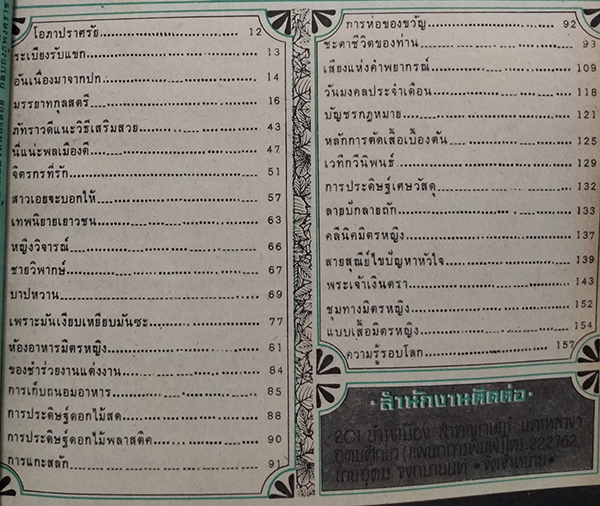 โอภาปราศรัย 12
ระเบียงรับแขก 13
อันเนื่องมาจากปก 14
มรรยาทกุลสตรี 16
ภัทราวดีแนะวิธีเสริมสวย 43
นี่แน่ะพลเมืองดี 47
จิตรกรที่รัก 51
สาวเอยจะบอกให้ 57
เทพนิยายเยาวชน 63
หญิงวิจารณ์ 66
ชายวิพากษ์ 67
บาปหวาน 69
เพราะมันเงียบเหยียบมันซะ 77
ห้องอาหารมิตรหญิง 81
ของชำร่วยงานแต่งงาน 84
การเก็บถนอมอาหาร 85
การประดิษฐ์ดอกไม้สด 88
การประดิษฐ์ดอกไม้พลาสติค 90
การแกะสลัก 91
การห่อของขวัญ 92
ชะตาชีวิตของท่าน 93
เสียงแห่งคำพยากรณ์ 109
วันมงคลประจำเดือน 118
บัญชรกฎหมาย 121
หลักการตัดเสื้อเบื้องต้น 125
เวทีกวีนิพนธ์ 129
การประดิษฐ์เศษวัสดุ 132
ลายปักลายถัก 133
คลีนิคมิตรหญิง 137
สายสุณีย์ไขปัญหาหัวใจ 139
พระเจ้าเงินตรา 143
ชุมทางมิตรหญิง 152
แบบเสื้อมิตรหญิง 154
ความรู้รอบโลก 157
สำนักงานติดต่อ
201 บำรุงเมือง
(แผนกการพิมพ์) โทร. 222762